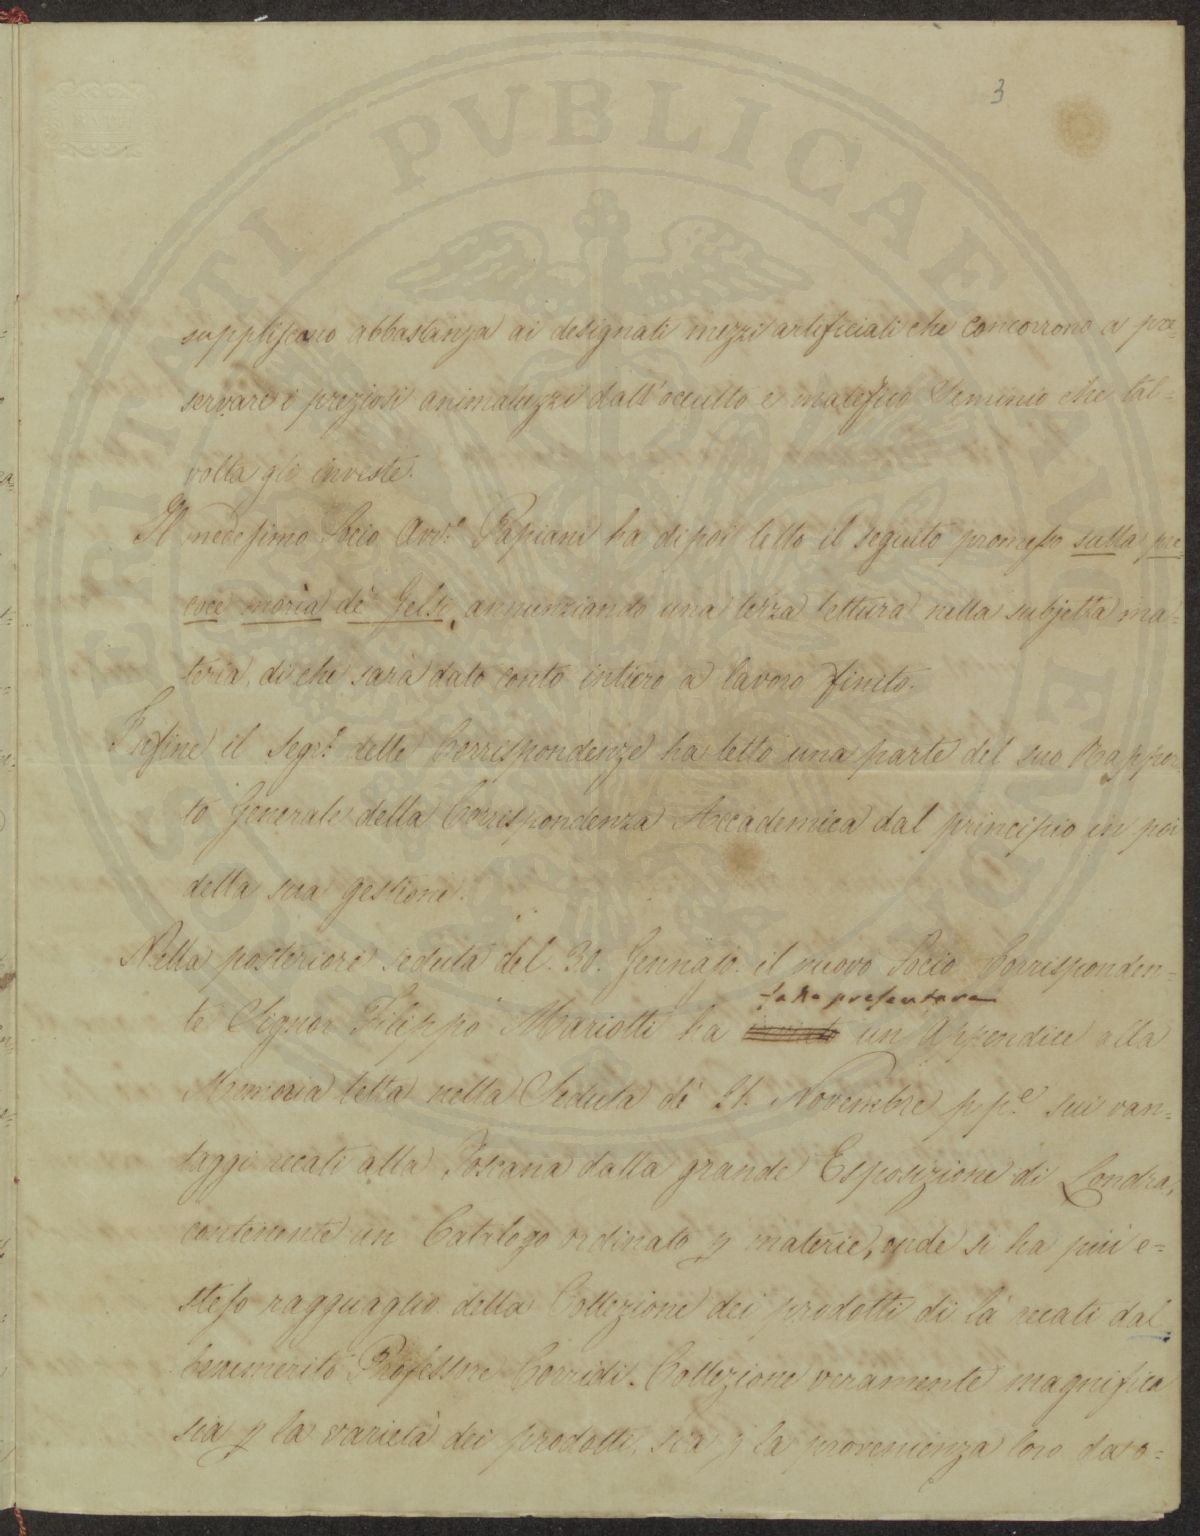 3
suppliscano abbastanza ai designati mezzi artificiali che concorrono a pre=
servare i preziosi animaluzzi dall'occulto e malefico Seminio che tal=
volta gli investe.
Il medesimo Socio Avv.º Papiani ha dipoi letto il seguito promesso sulla pre
coce morìa de' Gelsi, annunziando una terza lettura nella subjetta ma=
teria, di che sarà dato conto intiero a lavoro finito.
Infine il Segr.º delle Corrispondenze ha letto una parte del suo Rappor=
to Generale della Corrispondenza Accademica dal principio in poi
della sua gestione.
Nella posteriore seduta del 30. Gennajo il nuovo Socio Corresponden=
fatto presentare
te Signor Filippo Mariotti ha un Appendice alla
Memoria letta nella Seduta de' 21. Novembre p.p.º sui van=
taggi recati alla Toscana dalla grande Esposizione di Londra,
contenente un Catalogo ordinato p materie, onde si ha più e=
steso ragguaglio della Collezione dei prodotti di là recati dal
benemerito Professore Corridi. Collezione veramente magnifica
sia p la varietà dei prodotti, sia p la provenienza loro da o=
PVBLICAE